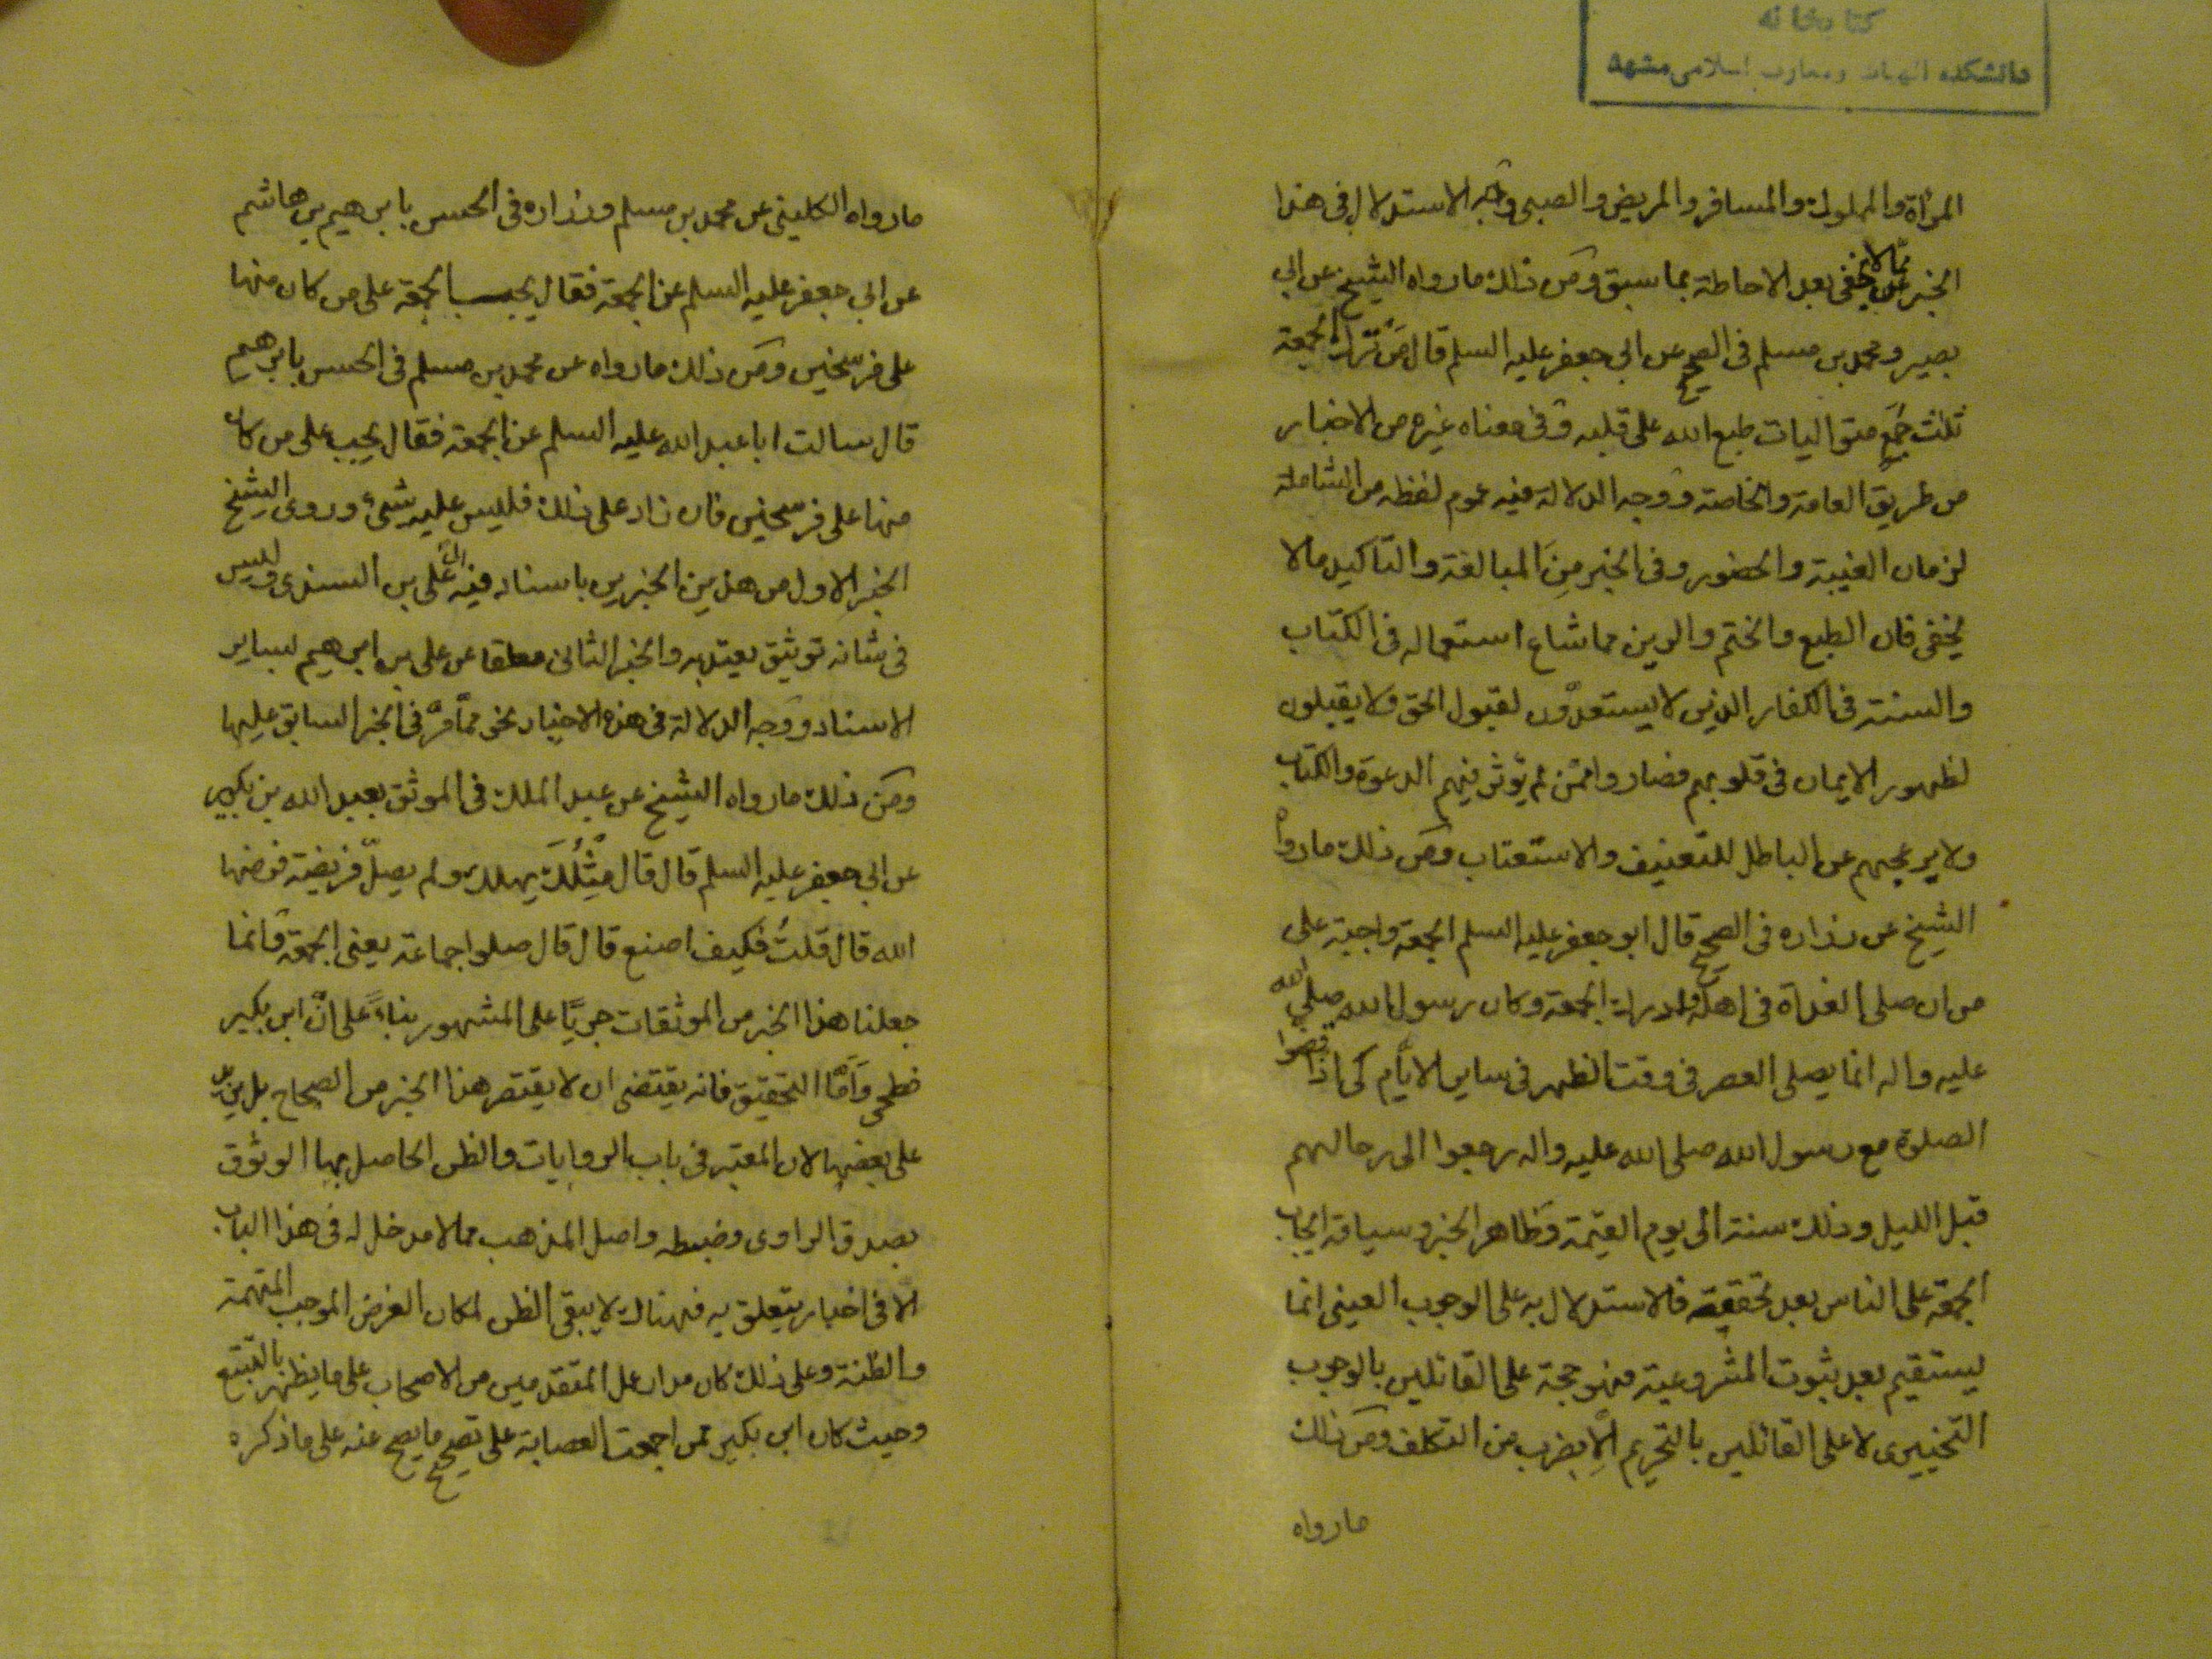 كتابخانه
دانشكده الهيات ومعارف اسلامى مشهد
المرأة والمملوك والمسافر والمريض والصبى ووجه الاستدلال فى هذا
الخبر مما لا يخفى بعد الاحاطة بما سبق ومن ذلك ما رواه الشيخ عن ابى
بصير ومحمد بن مسلم فى الصحيح عن ابى جعفر عليه السلم قال من ترك الجمعة
ثلث جمع متواليات طبع الله على قلبه وفى معناه غيره من الاخبار
من طريق العامة والخاصة ووجه الدلالة فيه عموم لفظه من الشاملة
لزمان الغيبة والحضور وفى الخبر من المبالغة والتاكيد مالا
يخفى فان الطبع والختم والرين مما شاع استعماله فى الكتاب
والسنة فى الكفار الذين لا يستعدّون لقبول الحق ولا يقبلون
لظهور الايمان فى قلوبهم فصاروا ممّن لم يؤثر فيهم الدعوة والكتاب
ولا يرجعهم عن الباطل للتعنيف والاستعتاب ومن ذلك ما رواه
الشيخ عن زراره فى الصحيح قال ابو جعفر عليه السلم الجمعة واجبة على
من ان صلى الغداة فى اهله ادرك الجمعة وكان رسول الله صلى الله
عليه واله انما يصلى العصر فى وقت الظهر فى ساير الايّام كى اذا قضوا
الصلوة مع رسول الله صلى الله عليه واله رجعوا الى رحالهم
قبل الليل وذلك سنة الى يوم القيمة وظاهر الخبر وسياقه ايجاب
الجمعة على الناس بعد تحققه فالاستدلال به على الوجوب العينى انما
يستقيم بعد ثبوت المشروعية فهو حجة على القائلين بالوجوب
التخييرى لا على القائلين بالتحريم الّا بضرب من التكلف ومن ذلك
ما رواه
ما رواه الكلينى عن محمد بن مسلم وزراره فى الحسن بابرهيم بن هاشم
عن ابى جعفر عليه السلم عن الجمعة فقال يجب الجمعة على من كان منها
على فرسخين ومن ذلك ما رواه عن محمد بن مسلم فى الحسن بابرهيم
قال سالت ابا عبد الله عليه السلم عن الجمعة فقال يجب على من كان
منها على فرسخين فان زاد على ذلك فليس عليه شىء وروى الشيخ
الخبر الاول من هذين الخبرين باسناد فيه الى على بن السندى وليس
فى شانه توثيق يعتد به والخبر الثانى معلقا عن على بن ابرهيم لساير
الاسناد ووجه الدلالة فى هذه الاخبار نحو ممّا مرّ فى الخبر السابق عليها
ومن ذلك ما رواه الشيخ عن عبد الملك فى الموثق بعبد الله بن بكير
عن ابى جعفر عليه السلم قال قال مِثْلُكَ يهلك ولم يصلّ فريضة فرضها
الله قال قلتُ فكيف اصنع قال قال صلوا جماعة يعنى الجمعة وانما
جعلنا هذا الخبر من الموثقات جريًا على المشهور بناءً على انّ ابن بكير
فطحى وامّا التحقيق فانه يقتضى ان لا يقتصر هذا الخبر من الصحاح بل يزيد
على بعضها لان المعتبر فى باب الروايات والظن الحاصل بها الوثوق
بصدق الراوى وضبطه واصل المذهب مما لا مدخل له فى هذا الباب
الّا فى اخبار يتعلق به فهناك لا يبقى الظن لمكان الغرض الموجب المتهمة
والظنة وعلى ذلك كان مدار عل المتقدمين من الاصحاب على ما يظهر بالتتبع
وحيث كان ابن بكير ممن اجمعت العصابة على تصحيح ما يصح عنه على ما ذكره